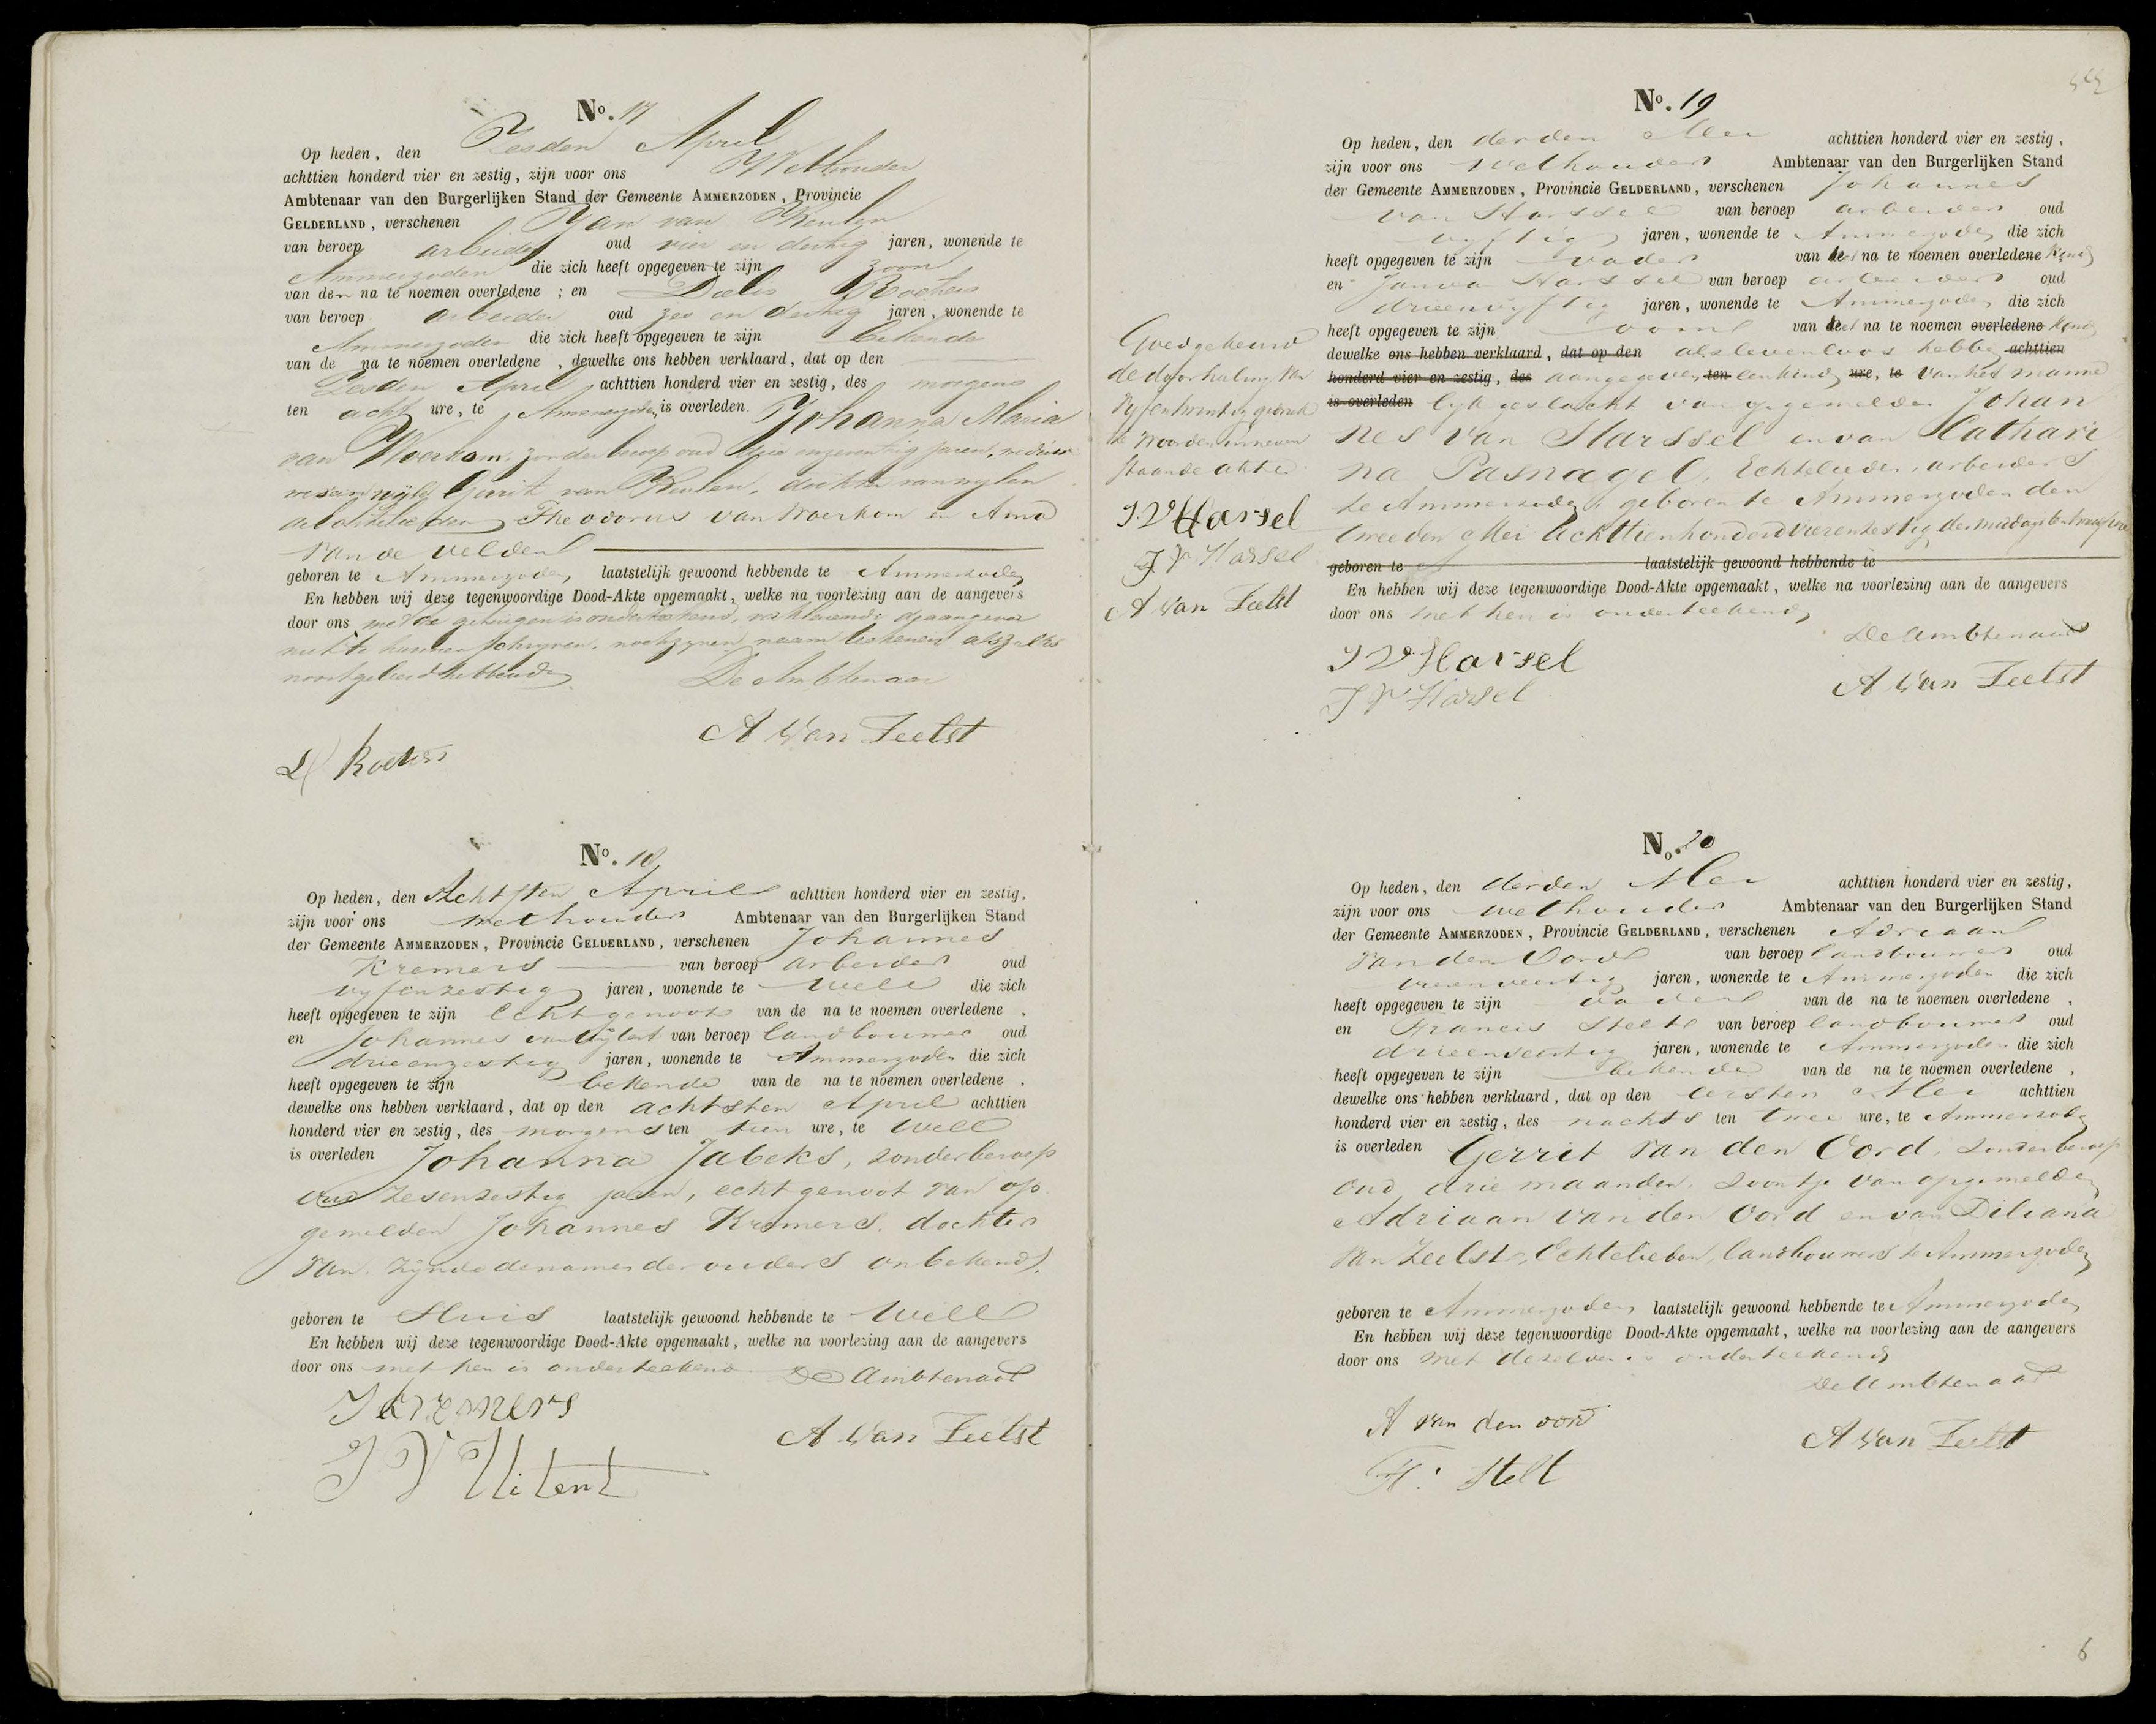 No. 17
Op heden, den Zesden April
achttien honderd vier en zestig, zijn voor ons Wethouder
Ambtenaar van den Burgerlijken Stand der Gemeente AMMERZODEN, Provincie
GELDERLAND, verschenen Jan van Keulen
van beroep arbeider oud vier en dertig jaren, wonende te
Ammerzoden die zich heeft opgegeven te zijn zoon
van den na te noemen overledene ; en Dielis Roeters
van beroep arbeider oud zes en dertig jaren, wonende te
Ammerzoden die zich heeft opgegeven te zijn bekende
van de na te noemen overledene , dewelke ons hebben verklaard, dat op den
Zesden April achttien honderd vier en zestig, des morgens
ten acht ure, te Ammerzoden is overleden. Johanna Maria
van Woerkom, zonder beroep oud drie enzeventig jaren, weduwe
van wijlen Gerrit van Keulen, dochter van wylen
de Echtelieden Theodorus van Woerkom en Anna
van de Velden
geboren te Ammerzoden laatstelijk gewoond hebbende te Ammerzoden
En hebben wij deze tegenwoordige Dood-Akte opgemaakt, welke na voorlezing aan de aangevers
door ons met de getuigen is onderteekend, verklarende de aangever
niet te kunnen schryven, noch zynen naam teekenen als zulks
nooit geleerd hebbende
De Ambtenaar
A van Zeelst
D Roeters
No. 18
Op heden, den Achtsten April achttien honderd vier en zestig,
zijn voor ons wethouder Ambtenaar van den Burgerlijken Stand
der Gemeente AMMERZODEN, Provincie GELDERLAND, verschenen Johannes
Kremers van beroep arbeider oud
vyfenzestig jaren, wonende te Well die zich
heeft opgegeven te zijn echtgenoot van de na te noemen overledene ,
en Johannes van Uijtert van beroep landbouwer oud
drieenzestig jaren, wonende te Ammerzoden die zich
heeft opgegeven te zijn bekende van de na te noemen overledene ,
dewelke ons hebben verklaard, dat op den achtsten April achttien
honderd vier en zestig, des morgens ten tien ure, te Well
is overleden Johanna Jabeks, zonder beroep
oud zesenzestig jaren, echtgenoot van op
gemelden Johannes Kremers. dochter
van. zijnde de namen der ouders onbekend).
geboren te Huis laatstelijk gewoond hebbende te Well
En hebben wij deze tegenwoordige Dood-Akte opgemaakt, welke na voorlezing aan de aangevers
door ons met hen is onderteekend De Ambtenaar
J Kremers
J V Uitert
A van Zeelst
No. 19
Op heden, den derden Mei achttien honderd vier en zestig,
zijn voor ons Wethouder Ambtenaar van den Burgerlijken Stand
der Gemeente AMMERZODEN, Provincie GELDERLAND, verschenen Johannes
van Harssel van beroep arbeider oud
vyftig jaren, wonende te Ammerzoden die zich
heeft opgegeven te zijn vader van het na te noemen overledene Kind
en Jan van Harssel van beroep arbeider oud
drieenvyftig jaren, wonende te Ammerzoden die zich
heeft opgegeven te zijn oom van het na te noemen overledene Kind
dewelke ons hebben verklaard, dat op den als levenloos hebben achttien
honderd vier en zestig, des aangegeven ten een kind ure, te van het manne
is overleden lijk geslacht van opgemelden Johan
nes van Harssel en van Kathari
na Pasnagel, Echtelieden, arbeiders
te Ammerzoden geboren te Ammerzoden den
tweeden Mei Achttienhonderdvierenzestig des middags ten twaalf ure
geboren te laatstelijk gewoond hebbende te
En hebben wij deze tegenwoordige Dood-Akte opgemaakt, welke na voorlezing aan de aangevers
door ons met hen is onderteekend
De Ambtenaar
J V Harsel
J V Harsel
A van Zeelst
Goedgekeurd
de doorhaling van
vyfentwintig gedruk
te woorden in neven
staande akte.
J. V Harsel
J V Harsel
A van Zeelst
No. 20
Op heden, den derden Mei achttien honderd vier en zestig,
zijn voor ons wethouder Ambtenaar van den Burgerlijken Stand
der Gemeente AMMERZODEN, Provincie GELDERLAND, verschenen Adriaan
van den Oord van beroep landbouwer oud
jaren, wonende te Ammerzoden die zich
heeft opgegeven te zijn vader van de na te noemen overledene ,
en Francis Stelt van beroep landbouwer oud
drieenveertig jaren, wonende te Ammerzoden die zich
heeft opgegeven te zijn bekende van de na te noemen overledene ,
dewelke ons hebben verklaard, dat op den eersten Mei achttien
honderd vier en zestig, des nachts ten twee ure, te Ammerzoden
is overleden Gerrit van den Oord, zonder beroep
oud drie maanden. zoontje van opgemelden
Adriaan van den Oord en van Diliana
van Zeelst, Echtelieden, landbouwers te Ammerzoden
geboren te Ammerzoden laatstelijk gewoond hebbende te Ammerzoden
En hebben wij deze tegenwoordige Dood-Akte opgemaakt, welke na voorlezing aan de aangevers
door ons met dezelven is onderteekend
De Ambtenaar
A van den oord
F. Stelt
A van Zeelst
6